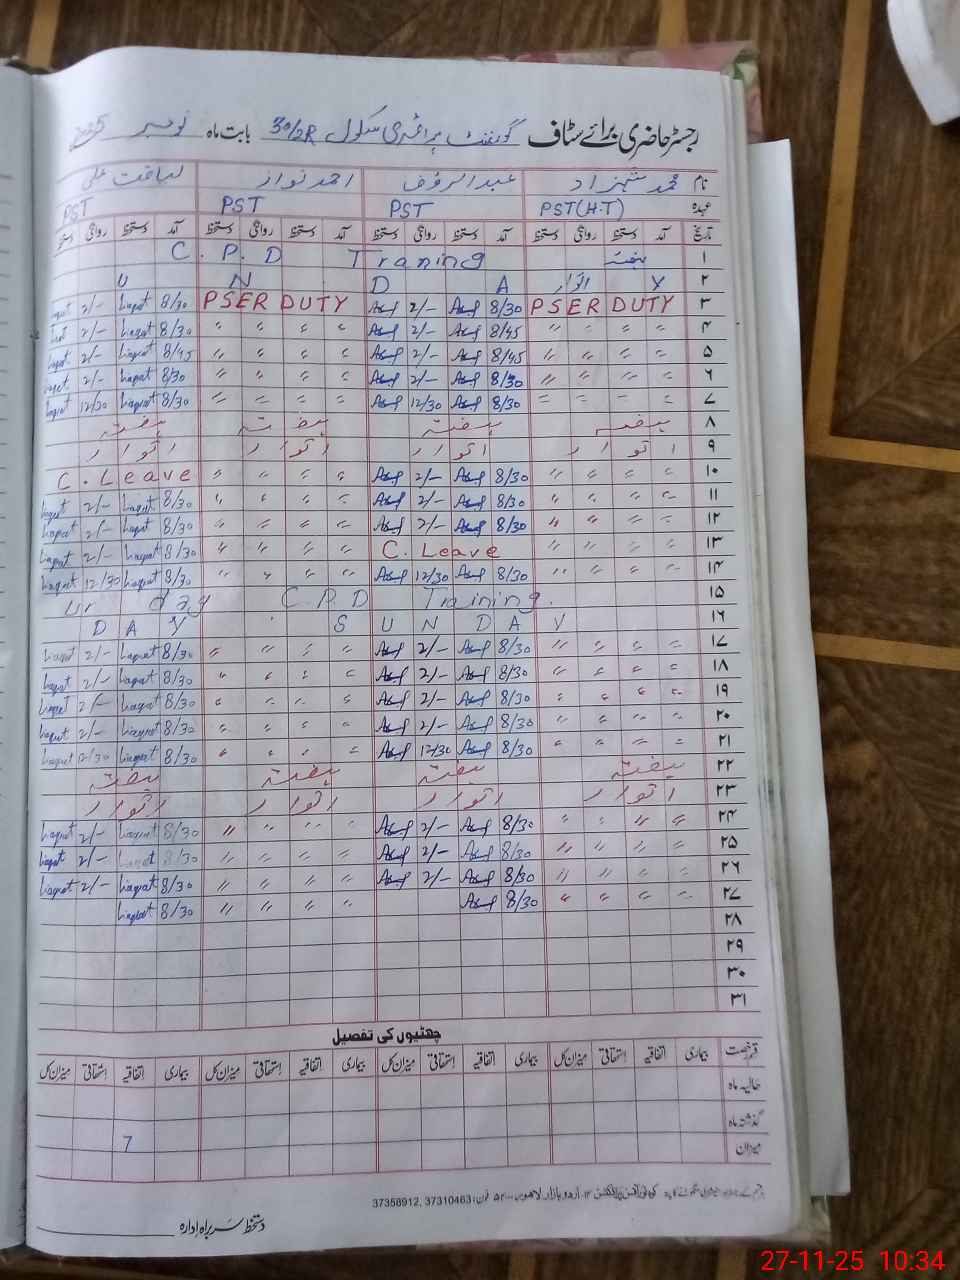 رجسٹر حاضری برائے سٹاف گورنمنٹ پرائمری سکول 30/2R بابت ماہ نومبر
نام محمد شہزاد عبدالرؤف احمد نواز لیاقت علی
عہدہ PST(H.T) PST PST PST
تاریخ آمد دستخط روانگی دستخط آمد دستخط روانگی دستخط آمد دستخط روانگی دستخط آمد دستخط روانگی دستخط
۱ ہفتہ C. P. D Traning
۲ U N D اتوار A Y
۳ PSER DUTY 8/30 2/- PSER DUTY 8/30 Liaqat 2/-
۴ " " " " 8/45 2/- " " " " 8/30 Liaqat 2/-
۵ " " " " 8/45 2/- " " " " 8/45 Liaqat 2/-
۶ " " " " 8/30 2/- " " " " 8/30 Liaqat 2/-
۷ " " " " 8/30 12/30 " " " " 8/30 Liaqat 12/30
۸ ہفتہ ہفتہ ہفتہ ہفتہ
۹ اتوار اتوار اتوار اتوار
۱۰ " " " " 8/30 2/- " " " " C. Leave
۱۱ " " " " 8/30 2/- " " " " 8/30 Liaqat 2/-
۱۲ " " " " 8/30 2/- " " " " 8/30 Liaqat 2/-
۱۳ " " " " C. Leave " " " " 8/30 Liaqat 2/-
۱۴ " " " " 8/30 12/30 " " " " 8/30 Liaqat 12/30
۱۵ day C.P.D Training.
۱۶ D A Y S U N D A Y
۱۷ " " " " 8/30 2/- " " " " 8/30 Liaqat 2/-
۱۸ " " " " 8/30 2/- " " " " 8/30 Liaqat 2/-
۱۹ " " " " 8/30 2/- " " " " 8/30 Liaqat 2/-
۲۰ " " " " 8/30 2/- " " " " 8/30 Liaqat 2/-
۲۱ " " " " 8/30 12/30 " " " " 8/30 Liaqat 12/30
۲۲ ہفتہ ہفتہ ہفتہ ہفتہ
۲۳ اتوار اتوار اتوار اتوار
۲۴ " " " " 8/30 2/- " " " " 8/30 Liaqat 2/-
۲۵ " " " " 8/30 2/- " " " " 8/30 Liaqat 2/-
۲۶ " " " " 8/30 2/- " " " " 8/30 Liaqat 2/-
۲۷ " " " " 8/30 " " " " 8/30 Liaqat
۲۸
۲۹
۳۰
۳۱
چھٹیوں کی تفصیل
قسم رخصت بیماری اتفاقیہ استحقاقی میزان کل بیماری اتفاقیہ استحقاقی میزان کل بیماری اتفاقیہ استحقاقی میزان کل بیماری اتفاقیہ استحقاقی میزان کل
حالیہ ماہ
گذشتہ ماہ
میزان 7
اردو بازار لاہور فون: 37310463, 37358912
دستخط سربراہ ادارہ
27-11-25 10:34